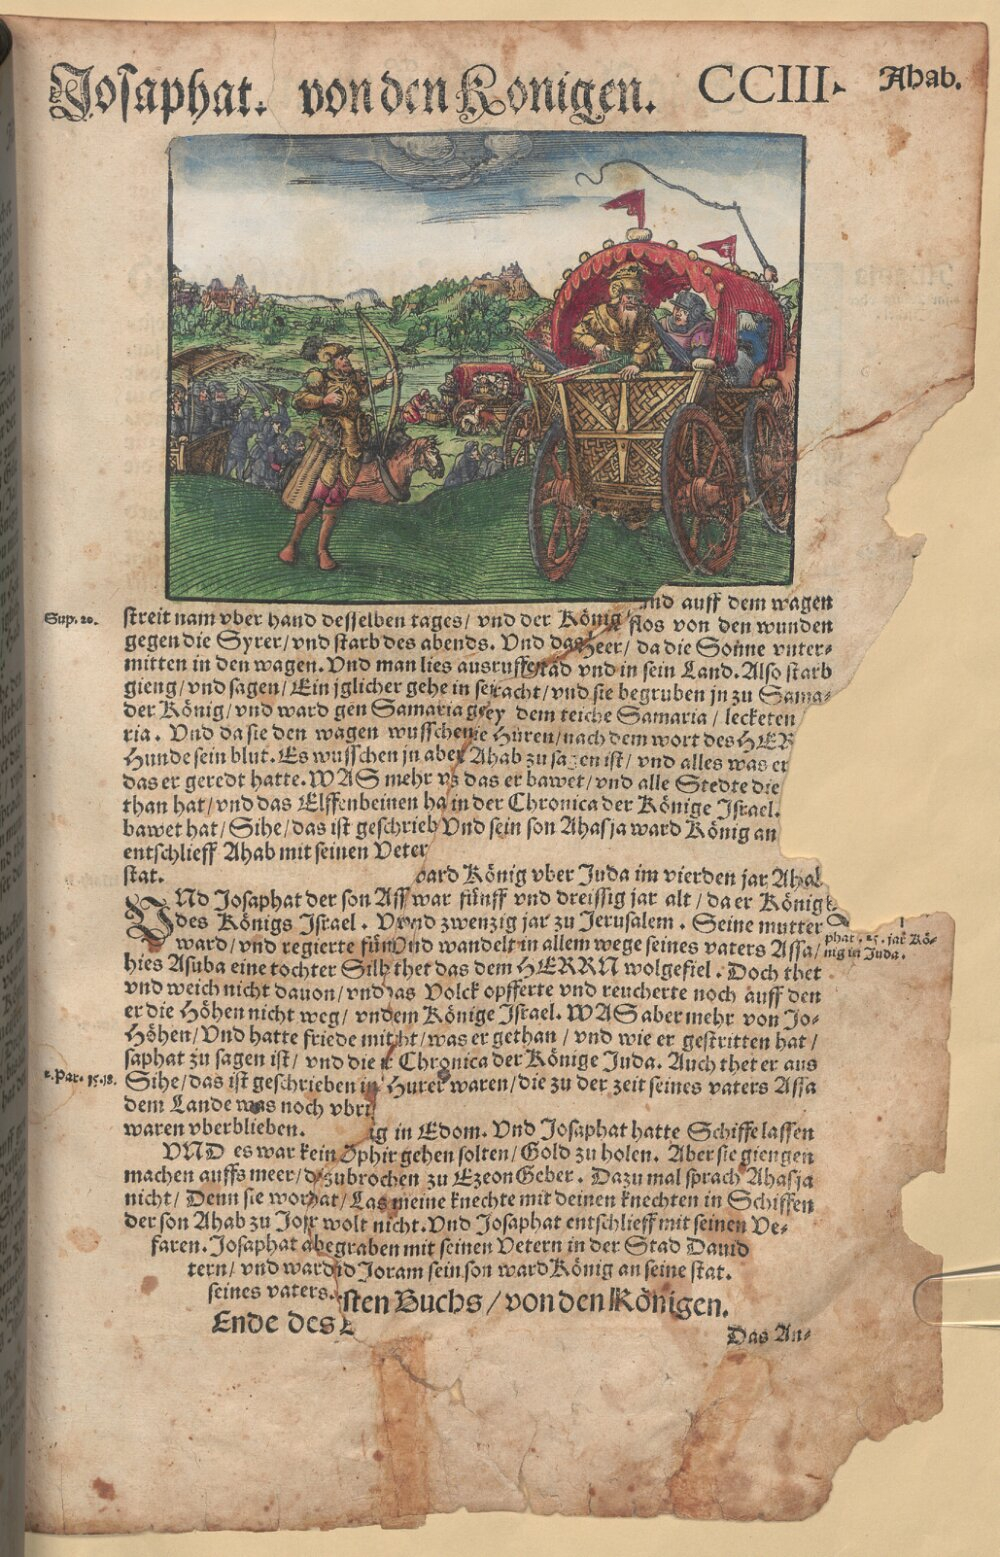 Josaphat. von den Konigen. CCIII. Ahab.
Sup. 20.
streit nam vber hand desselben tages/ vnd der König und auff dem wagen
gegen die Syrer/ vnd starb des abends. Vnd das flos von den wunden
mitten in den wagen. Vnd man lies ausruffen Heer/ da die Sonne vnter=
gieng/ vnd sagen/ Ein jglicher gehe in se tad vnd in sein Land. Also starb
der König/ vnd ward gen Samaria ge racht/ vnd sie begruben jn zu Sama=
ria. Vnd da sie den wagen wusschen ey dem teiche Samaria / lecketen
Hunde sein blut. Es wusschen jn aber ie Huren/ nach dem wort des HER
das er geredt hatte. WAS mehr v Ahab zu sagen ist/ vnd alles was er
than hat/ vnd das Elffenbeinen ha s das er bawet/ vnd alle Stedte die
bawet hat/ Sihe/ das ist geschrieb in der Chronica der Könige Israel.
entschlieff Ahab mit seinen Veter Vnd sein son Ahasja ward König an
stat.
VNd Josaphat der son Ass ward König vber Juda im vierden jar Ahab
des Königs Israel. V war fünff vnd dreissig jar alt/ da er König
ward/ vnd regierte fün nd zwenzig jar zu Jerusalem. Seine mutter
phat. 25. jar Kö=
nig in Juda.
hies Asuba eine tochter Silh Vnd wandelt in allem wege seines vaters Assa/
vnd weich nicht dauon/ vnd thet das dem HERRN wolgefiel. Doch thet
er die Höhen nicht weg/ vn das Volck opfferte vnd reucherte noch auff den
Höhen/ Vnd hatte friede mit dem Könige Israel. WAS aber mehr von Jo=
saphat zu sagen ist/ vnd die ht/ was er gethan/ vnd wie er gestritten hat/
2. Par. 15. 18.
Sihe/ das ist geschrieben in r Chronica der Könige Juda. Auch thet er aus
dem Lande was noch vbri Hurer waren/ die zu der zeit seines vaters Assa
waren vberblieben.
VND es war kein ig in Edom. Vnd Josaphat hatte Schiffe lassen
machen auffs meer/ d Ophir gehen solten/ Gold zu holen. Aber sie giengen
nicht/ Denn sie wor zubrochen zu EzeonGeber. Dazu mal sprach Ahasja
der son Ahab zu Jos hat/ Las meine knechte mit deinen knechten in Schiffen
faren. Josaphat a r wolt nicht. Vnd Josaphat entschlieff mit seinen Ve=
tern/ vnd ward begraben mit seinen Vetern in der Stad Dauid
seines vaters. d Joram sein son ward König an seine stat.
Ende des E sten Buchs/ von den Königen.
Das An=